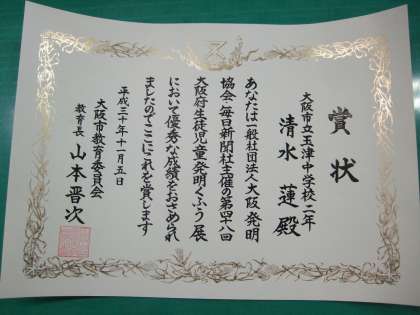 賞状
大阪市立玉津中学校二年
清水 蓮 殿
あなたは一般社団法人大阪発明
協会・毎日新聞社主催の第四十八回
大阪府生徒児童発明くふう展
において優秀な成績をおさめられ
ましたのでここにこれを賞します
平成三十年十一月五日
大阪市教育委員会
教育長 山本晋次